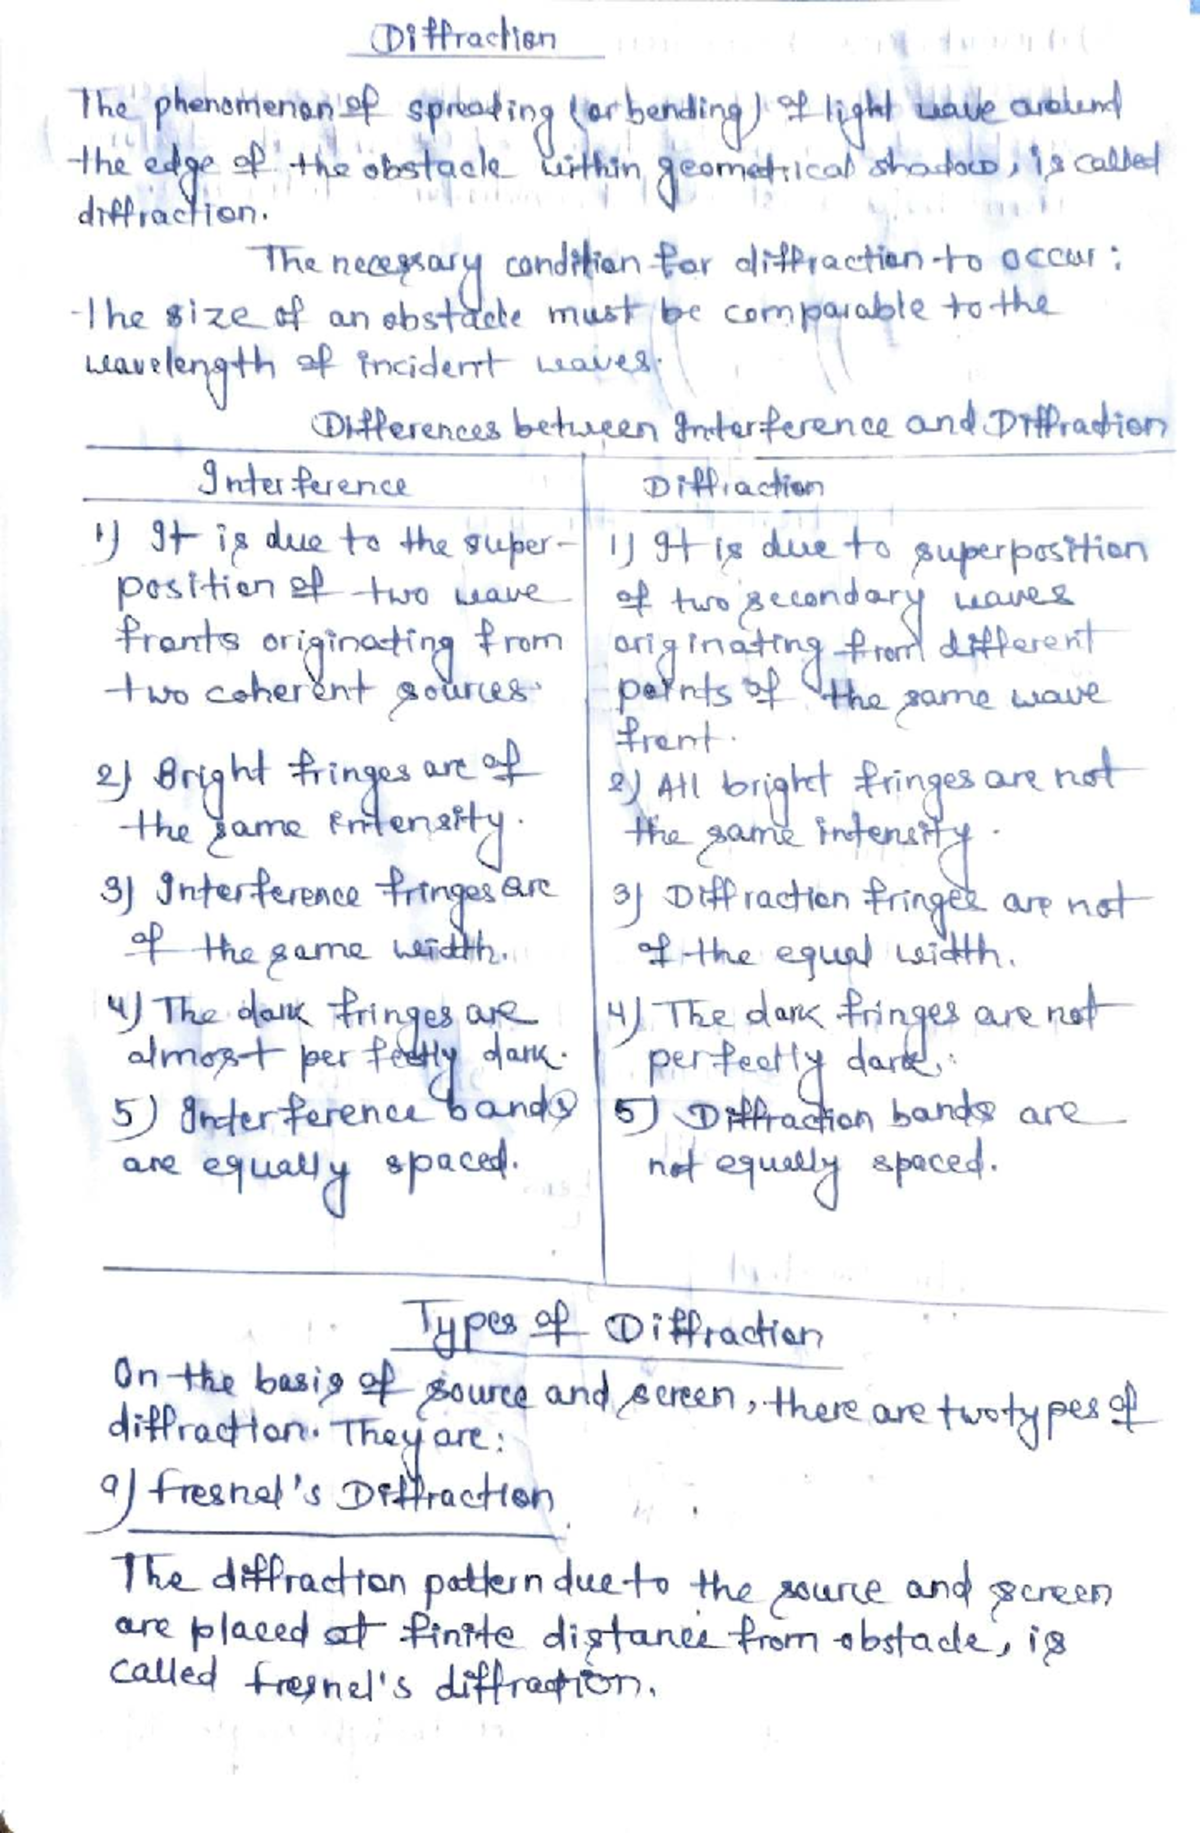 Diffraction
The phenomenon of spreading (or bending) of light wave around
the edge of the obstacle within geometrical shadow, is called
diffraction.
The necessary condition for diffraction to occur:
The size of an obstacle must be comparable to the
wavelength of incident waves.
Differences between Interference and Diffraction
Interference
1) It is due to the super-
position of two wave
fronts originating from
two coherent sources.
2) Bright fringes are of
the same intensity.
3) Interference fringes are
of the same width.
4) The dark fringes are
almost perfectly dark.
5) Interference bands
are equally spaced.
Diffraction
1) It is due to superposition
of two secondary waves
originating from different
points of the same wave
front.
2) All bright fringes are not
the same intensity.
3) Diffraction fringes are not
of the equal width.
4) The dark fringes are not
perfectly dark.
5) Diffraction bands are
not equally spaced.
Types of Diffraction
On the basis of source and screen, there are two types of
diffraction. They are:
a) Fresnel's Diffraction
The diffraction pattern due to the source and screen
are placed at finite distance from obstacle, is
called fresnel's diffraction.